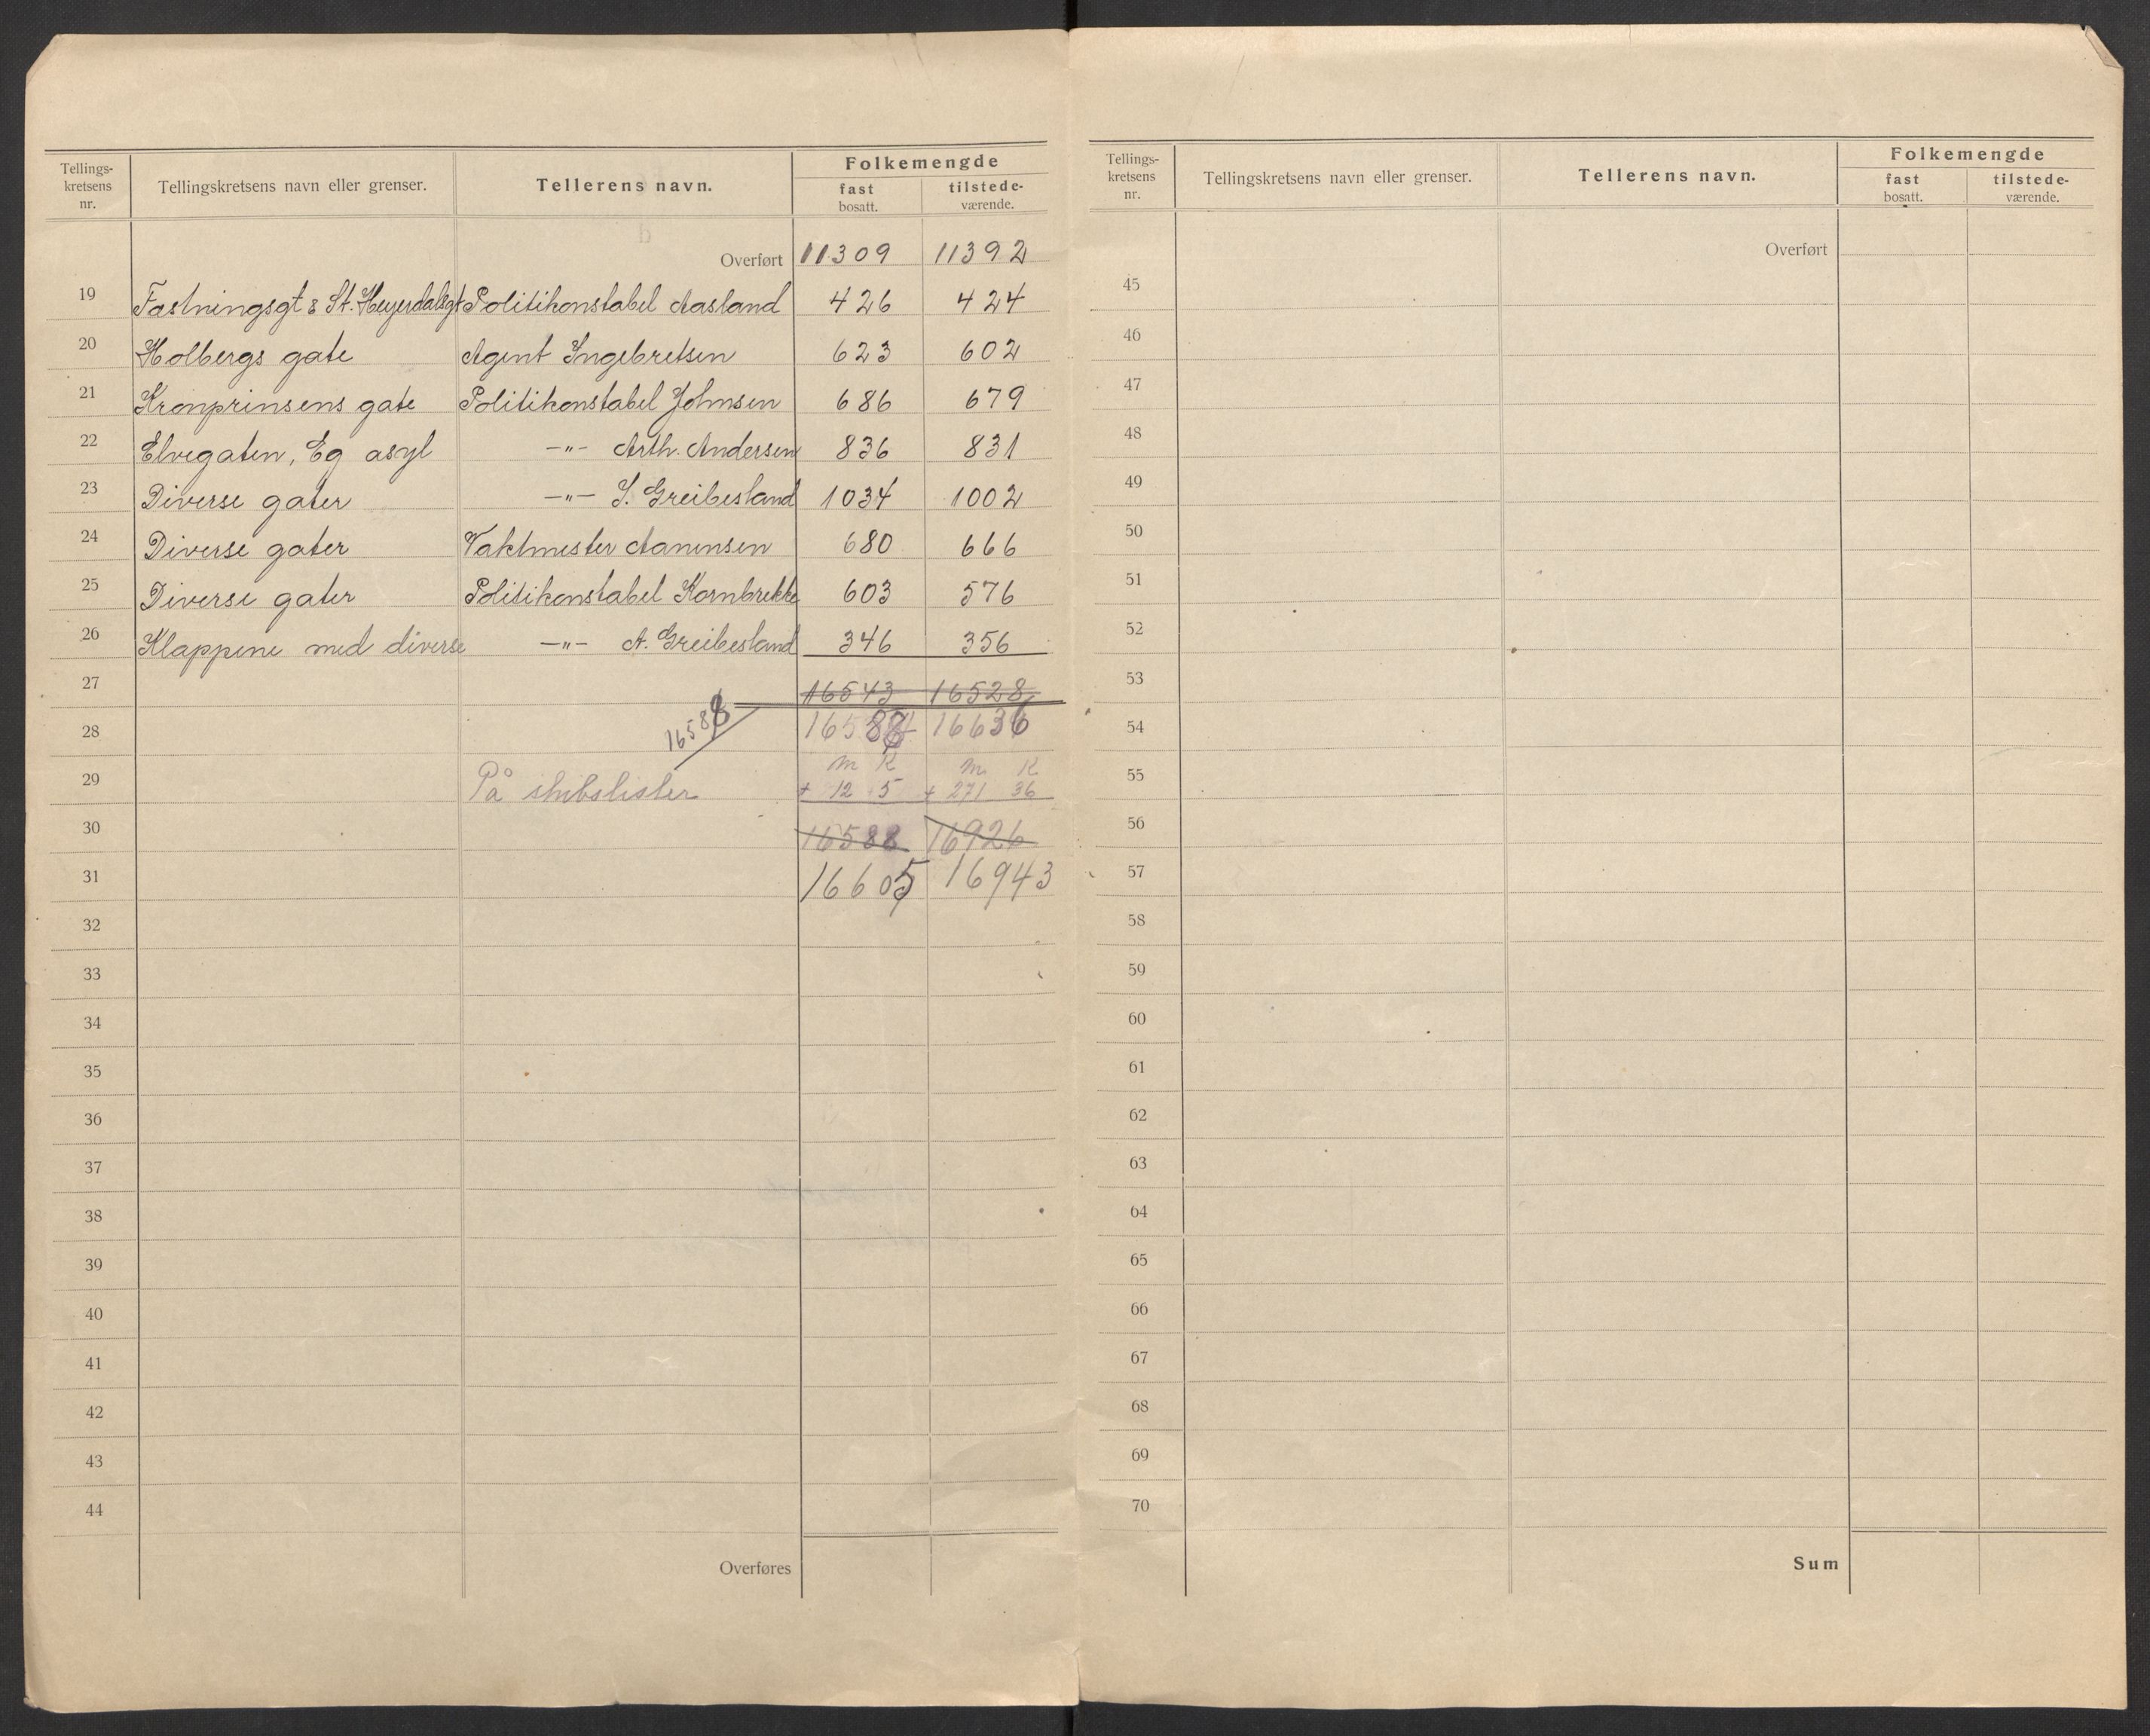 Tellings-
kretsens
nr.
Tellingskretsens navn eller grenser.
Tellerens navn.
Folkemengde
fast
bosatt.
tilstede-
værende.
Overført 11309 11392
19 Fastningsgt & St. Heyerdalsgt Politikonstabel Aasland 426 424
20 Holbergs gate Agent Ingebretsen 623 602
21 Kronprinsens gate Politikonstabel Johnsen 686 679
22 Elvegaten, Eg asyl -"- Arth. Andersen 836 831
23 Diverse gater -"- Greibesland 1034 1002
24 Diverse gater Vaktmester Aanensen 680 666
25 Diverse gater Politikonstabel Kornbrekke 603 576
26 Klappene med diverse -"- A. Greibesland 346 356
27 16543 16528
28 16588 16588 16636
m K m K
29 På skibslister + 12 5 + 271 36
30 16588 16926
31 16605 16943
32
33
34
35
36
37
38
39
40
41
42
43
44
Overføres
Tellings-
kretsens
nr.
Tellingskretsens navn eller grenser.
Tellerens navn.
Folkemengde
fast
bosatt.
tilstede-
værende.
Overført
45
46
47
48
49
50
51
52
53
54
55
56
57
58
59
60
61
62
63
64
65
66
67
68
69
70
Sum